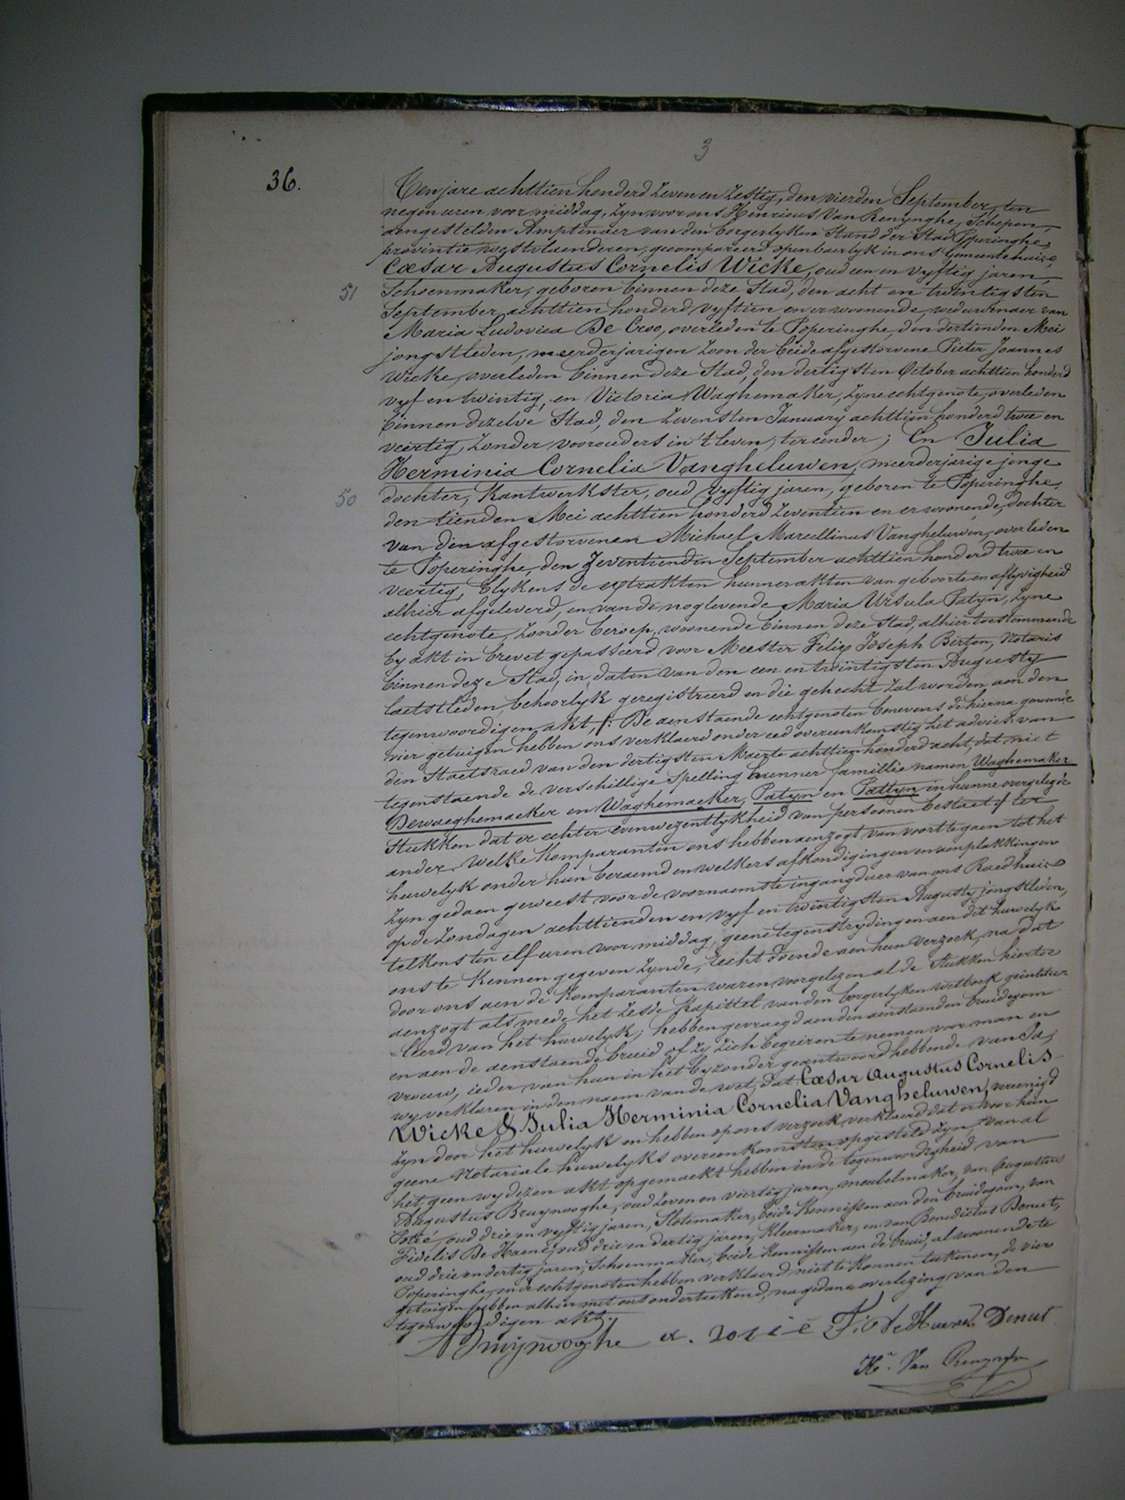 3
36.
Ten jare achttien honderd zeven en zestig, den vierden September, ten
negen uren voor middag, zyn voor ons Henricus Van Renynghe, Schepen,
aengestelden Amptenaer van den borgerlyken Stand der Stad Poperinghe,
provintie westvlaenderen, gecompareerd openbaerlyk in ons Gemeentehuis,
Cæsar Augustus Cornelis Wicke, oud een en vyftig jaren,
51
Schoenmaker, geboren binnen deze Stad, den acht en twintigsten
September achttien honderd vyftien en er woonende, weduwenaer van
Maria Ludovica De Croo, overleden te Poperinghe, den dertienden Mei
jongstleden, meerderjarigen Zoon der beide afgestorvene Pieter Joannes
Wicke, overleden binnen deze Stad, den dertigsten October achttien honderd
vyf en twintig, en Victoria Waghemaker, zyne echtgenote, overleden
binnen dezelve Stad, den zevensten January achttien honderd twee en
veertig, zonder voorouders in 't leven, ter eender; En Julia
Herminia Cornelia Vangheluwen, meerderjarige jonge
50
dochter, Kantwerkster, oud vyftig jaren, geboren te Poperinghe,
den tienden Mei achttien honderd zeventien en er woonende, dochter
van den afgestorvenen Michael Marcellinus Vangheluwen, overleden
te Poperinghe, den zeventienden September achttien honderd twee en
veertig, blykens de extrakten hunner akten van geboorte en aflyvigheid
alhier afgeleverd, en van de noglevende Maria Ursula Patyn, zyne
echtgenote, zonder beroep, woonende binnen deze Stad, alhier toestemmende
by akt in brevet gepasseerd voor Meester Felix Joseph Berten, Notaris
binnen deze Stad, in daten van den een en twintigsten Augusty
laetstleden, behoorlyk geregistreerd en die gehecht zal worden aen den
tegenwoordigen akt, /: De aenstaende echtgenoten benevens de hierna genoemde
vier getuigen hebben ons verklaerd onder eed overeenkomstig het advies van
den Staetsraed van den dertigsten Maerte achttien honderd acht, dat niet
tegenstaende de verschillige spelling hunner famillie namen Waghemaker
Dewaeghemaeker en Waghemaeker, Patyn en Pattyn in hunne overgelegde
Stukken dat er echter eenwezentlykheid van persoonen bestaet :/ ter
ander. Welke Komparanten ons hebben aenzogt van voort te gaen tot het
huwelyk onder hun beraemd en welkers afkondigingen en aenplakkingen
zyn gedaen geweest voor de voornaemste ingangdeur van ons Raedhuis
op de Zondagen achttienden en vyf en twintigsten Augusty jongstleden,
telkens ten elf uren voor middag, geene tegenstrydingen aen dit huwelyk
ons te Kennen gegeven zynde, recht doende aen hun verzoek, na dat
door ons aen de Komparanten waren vorgelezen al de Stukken hiertoe
aenzogt als mede het zesde Kapittel van den borgerlyken wetboek geintitu-
-leerd van het huwelyk; hebben gevraegd aen den aenstaenden bruidegom
en aen de aenstaende bruid of zy zich begeiren te nemen voor man en
vrouw, ieder van hun in het byzonder geantwoord hebbende van Ja,
wy verklaren in den naem van de wet, dat Cæsar Augustus Cornelis
Wicke & Julia Herminia Cornelia Vangheluwen, vereenigd
zyn door het huwelyk en hebben op ons verzoek verklaerd dat er voor hun
geene Notariale huwelyks overeenkomsten opgesteld zyn van al
het geen wy dezen akt opgemaekt hebben in de tegenwoordigheid van
Augustus Bruynooghe, oud zeven en veertig jaren, meubelmaker, van Augustus
oud drie en vyftig jaren, Slotemaker, beide Kennissen aen den bruidegom, van
Fidelis De Haene, oud drie en dertig jaren, Kleermaker, en van Benedictus Denut,
oud drie en dertig jaren, Schoenmaker, beide Kennissen aen de bruid, al woonende te
Poperinghe, onze echtgenoten hebben verklaerd niet te konnen teekenen, de vier
getuigen hebben alhier met ons onderteekend, na gedane overlezing van den
tegenwoordigen akt.
Denut
Hri Van Renynghe